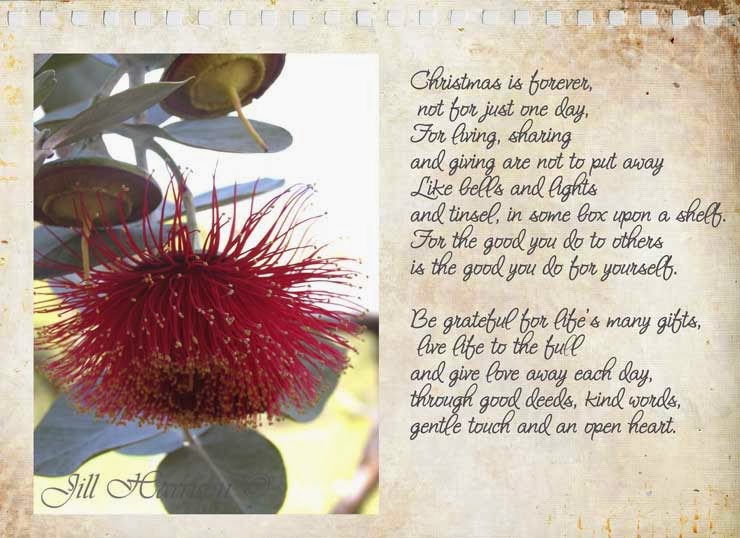 Christmas is forever,
not for just one day,
For living, sharing
and giving are not to put away
Like bells and lights
and tinsel, in some box upon a shelf.
For the good you do to others
is the good you do for yourself.
Be grateful for life's many gifts,
live life to the full
and give love away each day,
through good deeds, kind words,
gentle touch and an open heart.
Jill Harrison ©